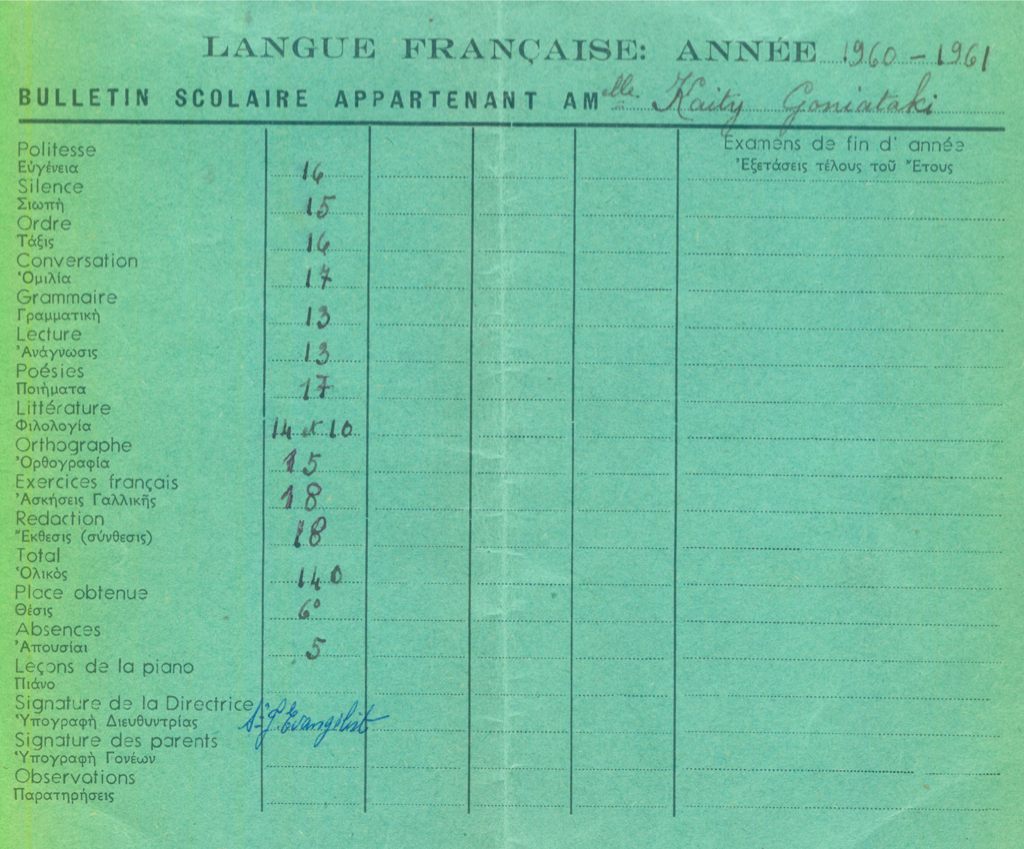 LANGUE FRANÇAISE: ANNÉE 1960-1961
BULLETIN SCOLAIRE APPARTENANT A Melle Kaity Goniataki
Examens de fin d' année
Ἐξετάσεις τέλους τοῦ Ἔτους
Politesse
Εὐγένεια 16
Silence
Σιωπή 15
Ordre
Τάξις 16
Conversation
Ὁμιλία 17
Grammaire
Γραμματική 13
Lecture
Ἀνάγνωσις 13
Poésies
Ποιήματα 17
Littérature
Φιλολογία 14 et 10
Orthographe
Ὀρθογραφία 15
Exercices français
Ἀσκήσεις Γαλλικῆς 18
Redaction
Ἔκθεσις (σύνθεσις) 18
Total
Ὁλικὸς 140
Place obtenue
Θέσις 6º
Absences
Ἀπουσίαι 5
Leçons de la piano
Πιάνο
Signature de la Directrice
Ὑπογραφὴ Διευθυντρίας Sr J. Evangelist
Signature des parents
Ὑπογραφὴ Γονέων
Observations
Παρατηρήσεις